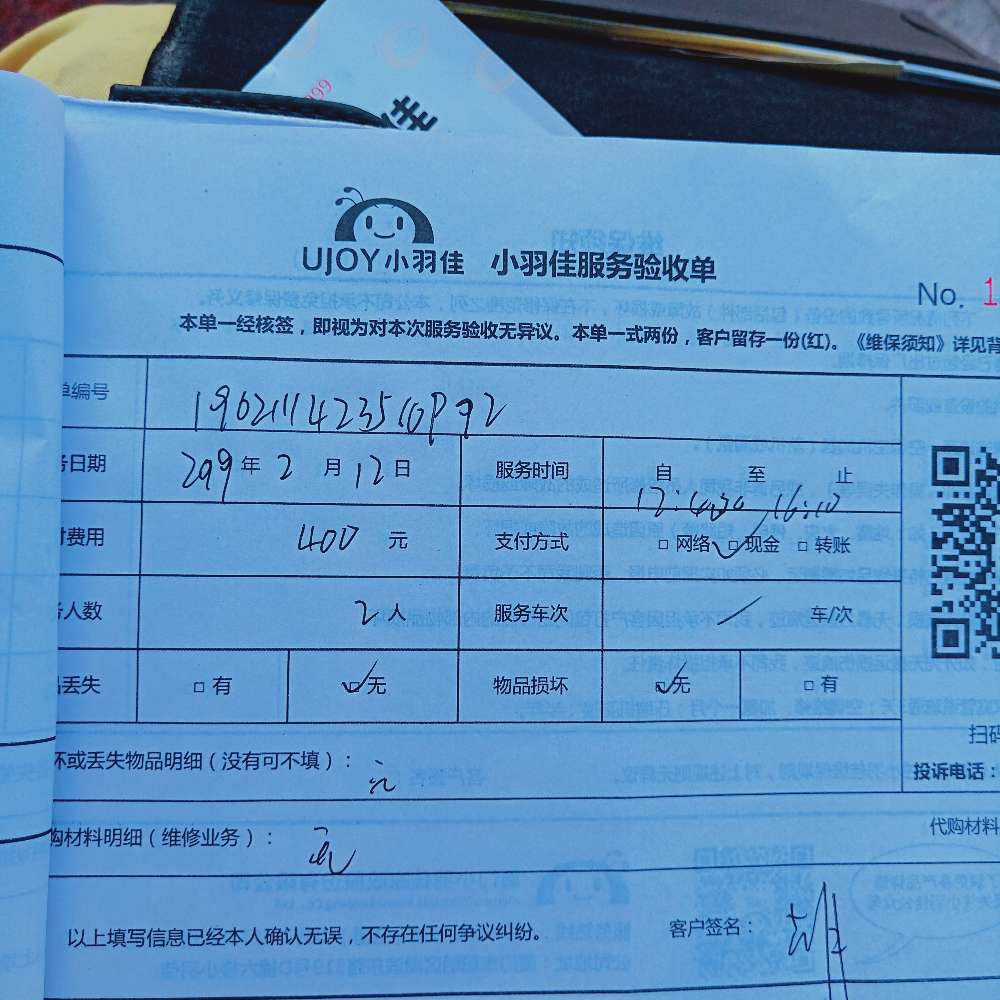 999
佳
UJOY小羽佳 小羽佳服务验收单
No. 1
本单一经核签，即视为对本次服务验收无异议。本单一式两份，客户留存一份(红)。《维保须知》详见背
单编号
务日期 年 2 月 12 日 服务时间 自 至 止
16:10
付费用 400 元 支付方式 □ 网络 ☑ 现金 □ 转账
务人数 2 人 服务车次 / 车/次
品丢失 □ 有 ☑ 无 物品损坏 ☑ 无 □ 有
扫码
坏或丢失物品明细（没有可不填）： 无
投诉电话：
购材料明细（维修业务）： 无
代购材料
以上填写信息已经本人确认无误，不存在任何争议纠纷。 客户签名：